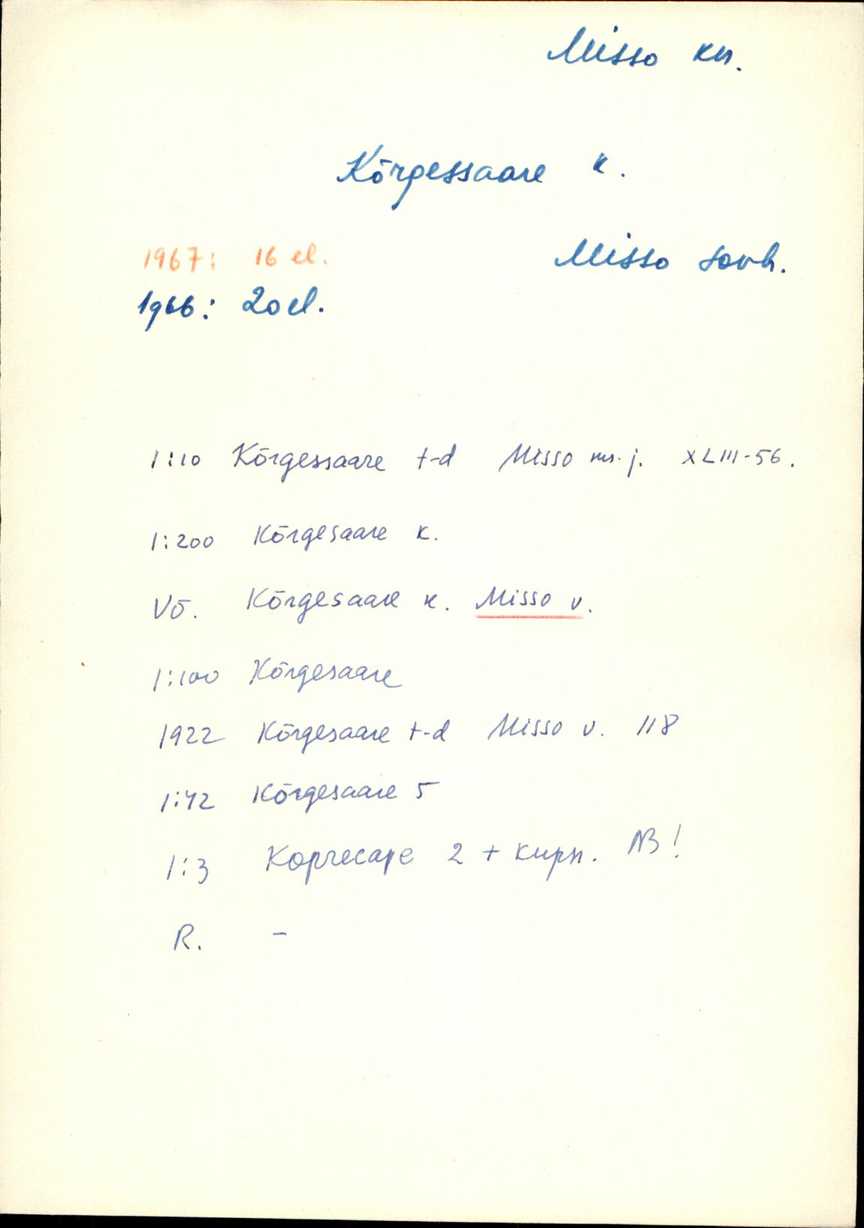 Misso kn.
Kõrgessaare k.
1967: 16 el. Misso sovh.
1966: 20 el.
1:10 Kõrgessaare t-d Misso j. XLIII-56.
1:200 Kõrgesaare k.
Võ. Kõrgesaare k. Misso v.
1:100 Kõrgesaare
1922 Kõrgesaare t-d Misso v. 118
1:42 Kõrgesaare 5
1:3 2 + кирп. NB!
R. –